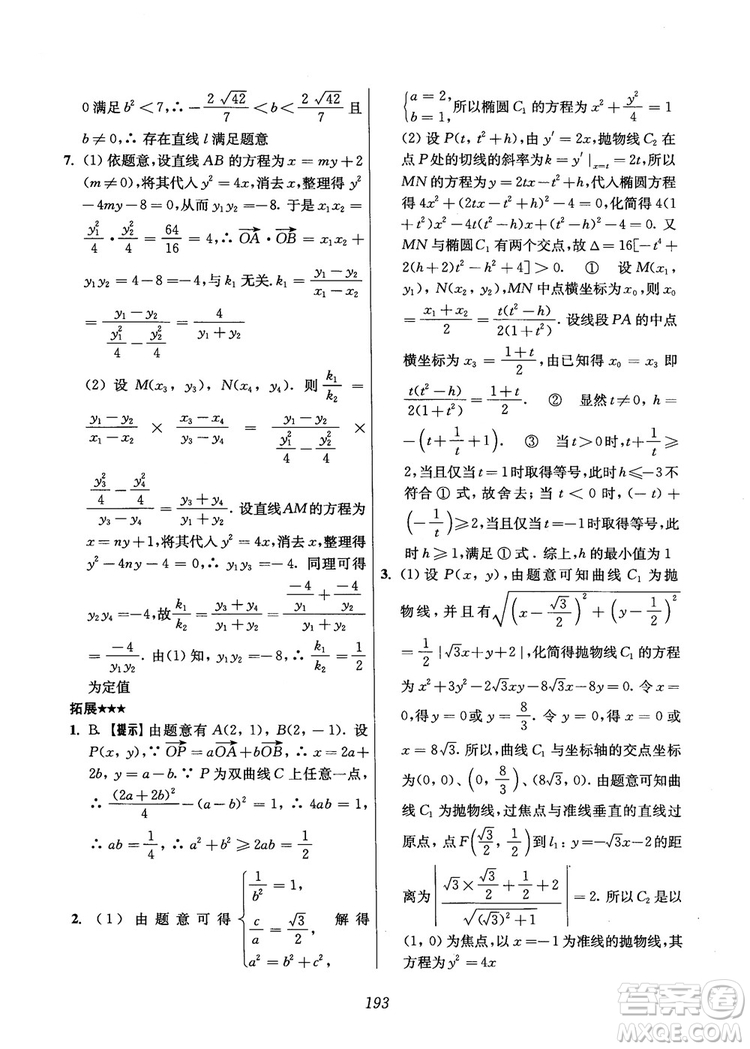 0满足 b² < 7, ∴ -2√42/7 < b < 2√42/7 且
b≠0, ∴ 存在直线 l 满足题意
7. (1) 依题意, 设直线 AB 的方程为 x = my+2
(m≠0), 将其代入 y² = 4x, 消去 x, 整理得 y²
-4my-8=0, 从而 y₁y₂=-8. 于是 x₁x₂=
y₁²/4 · y₂²/4 = 64/16 = 4, ∴ OA→ · OB→ = x₁x₂ +
y₁y₂=4-8=-4, 与 k₁ 无关. k₁ = (y₁-y₂)/(x₁-x₂)
= (y₁-y₂)/(y₁²/4 - y₂²/4) = 4/(y₁+y₂)
(2) 设 M(x₃, y₃), N(x₄, y₄). 则 k₁/k₂ =
(y₁-y₂)/(x₁-x₂) × (x₃-x₄)/(y₃-y₄) = (y₁-y₂)/(y₁²/4 - y₂²/4) ×
(y₃²/4 - y₄²/4)/(y₃-y₄) = (y₃+y₄)/(y₁+y₂). 设直线AM的方程为
x=ny+1, 将其代入 y²=4x, 消去 x, 整理得
y²-4ny-4=0, ∴ y₁y₃=-4. 同理可得
y₂y₄=-4, 故 k₁/k₂ = (y₃+y₄)/(y₁+y₂) = (-4/y₁ + -4/y₂)/(y₁+y₂)
= -4/(y₁y₂). 由(1) 知, y₁y₂=-8, ∴ k₁/k₂ = 1/2
为定值
拓展★★★
1. B. 【提示】由题意有 A(2, 1), B(2, -1). 设
P(x, y), ∵ OP→ = aOA→ + bOB→, ∴ x = 2a+
2b, y = a-b. ∵ P 为双曲线 C 上任意一点,
∴ (2a+2b)²/4 - (a-b)² = 1, ∴ 4ab = 1,
∴ ab = 1/4, ∴ a²+b² ≥ 2ab = 1/2
2. (1) 由题意可得 { 1/b² = 1, c/a = √3/2, a² = b²+c², 解得
{ a = 2, b = 1, 所以椭圆 C₁ 的方程为 x² + y²/4 = 1
(2) 设 P(t, t²+h), 由题意知, 抛物线 C₂ 在
点 P 处的切线的斜率为 k=y′|ₓ₌ₜ=2t, 所以
MN 的方程为 y=2tx-t²+h, 代入椭圆方程
得 4x²+(2tx-t²+h)²-4=0, 化简得 4(1
+t²)x²-4t(t²-h)x+(t²-h)²-4=0. 又
MN 与椭圆 C₁ 有两个交点, 故 Δ=16[-t⁴+
2(h+2)t²-h²+4]>0. ① 设 M(x₁,
y₁), N(x₂, y₂), MN 中点横坐标为 x₀, 则 x₀
= (x₁+x₂)/2 = t(t²-h)/2(1+t²). 设线段 PA 的中点
横坐标为 x₃ = (1+t)/2, 由已知得 x₀ = x₃ 即
t(t²-h)/2(1+t²) = (1+t)/2. ② 显然 t≠0, h=
-(t + 1/t + 1). ③ 当 t>0 时, t + 1/t ≥
2, 当且仅当 t=1 时取得等号, 此时 h≤-3不
符合 ① 式, 故舍去; 当 t<0 时, (-t)+
(-1/t)≥2, 当且仅当 t=-1 时取得等号, 此
时 h≥1, 满足 ① 式. 综上, h 的最小值为 1
3. (1) 设 P(x, y), 由题意可知曲线 C₁ 为抛
物线, 并且有 √((x - √3/2)² + (y - 1/2)²)
= 1/2 |√3x+y+2|, 化简得抛物线 C₁ 的方程
为 x²+3y²-2√3xy-8√3x-8y=0. 令 x=
0, 得 y = 0 或 y = 8/3. 令 y = 0, 得 x = 0 或
x = 8√3. 所以, 曲线 C₁ 与坐标轴的交点坐标
为(0, 0)、(0, 8/3)、(8√3, 0). 由题意可知曲
线 C₁ 为抛物线, 过焦点与准线垂直的直线过
原点, 点 F(√3/2, 1/2)到 l₁: y=-√3x-2 的距
离为 |(√3×√3/2 + 1/2 + 2)/√((√3)²+1)| = 2. 所以 C₂ 是以
(1, 0)为焦点, 以 x=-1 为准线的抛物线, 其
方程为 y² = 4x
193
答案圈
MXQE.COM